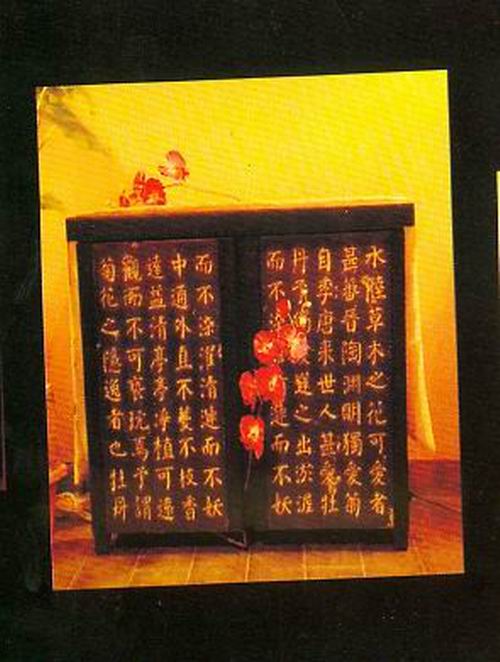 水陸草木之花可愛者
甚蕃晉陶渊明獨愛菊
自李唐来世人甚愛牡
丹予蓮之出淤泥
而不蓮而不妖
而不染濯清漣而不妖
中通外直不蔓不枝香
遠益清亭亭净植可遠
觀而不可褻玩焉予謂
菊花之隐逸者也牡丹